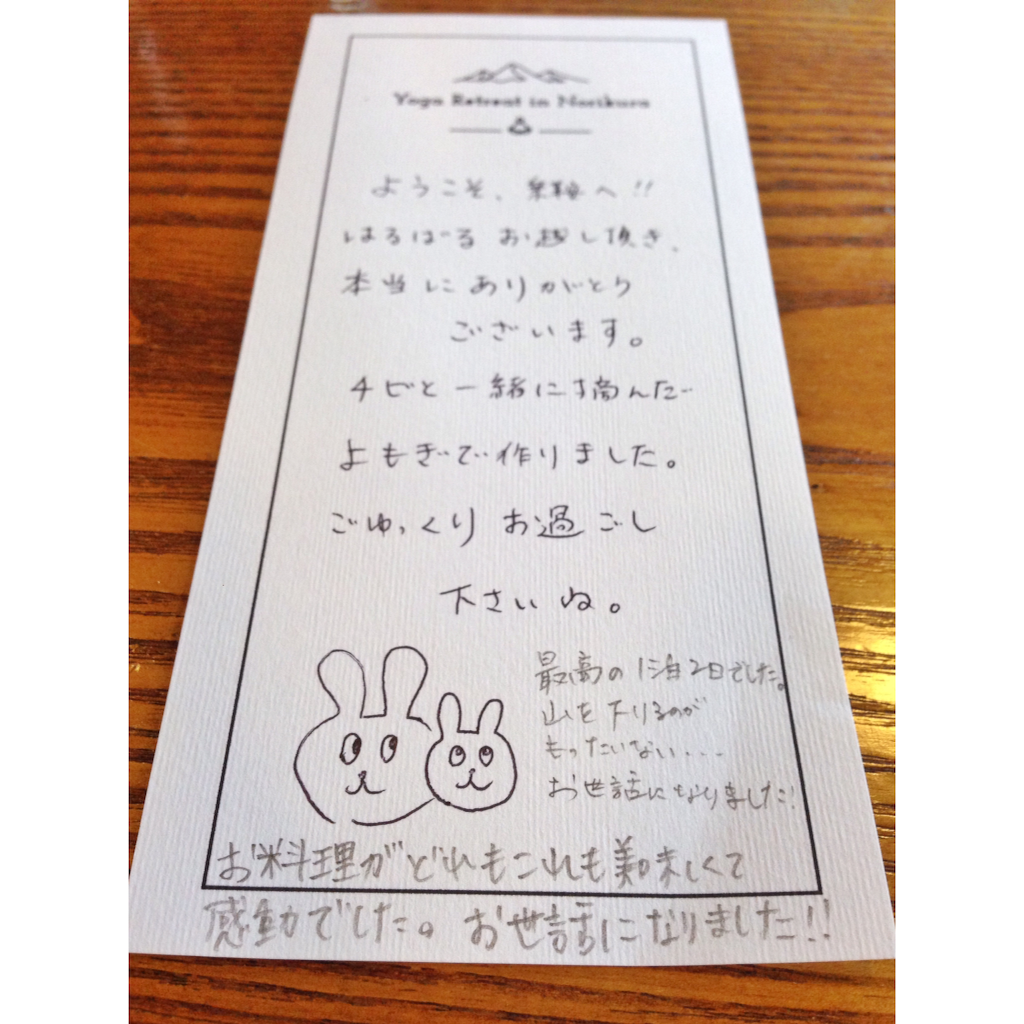 Yoga Retreat in Norikura
ようこそ、乗鞍へ!!
はるばる お越し頂き、
本当にありがとう
ございます。
チビと一緒に摘んだ
よもぎで作りました。
ごゆっくり お過ごし
下さいね。
最高の1泊2日でした。
山を下りるのが
もったいない...
お世話になりました!
お料理がどれもこれも美味しくて
感動でした。お世話になりました!!